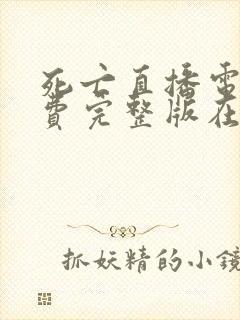 死亡直播电
费完整版在
抓妖精的小镜